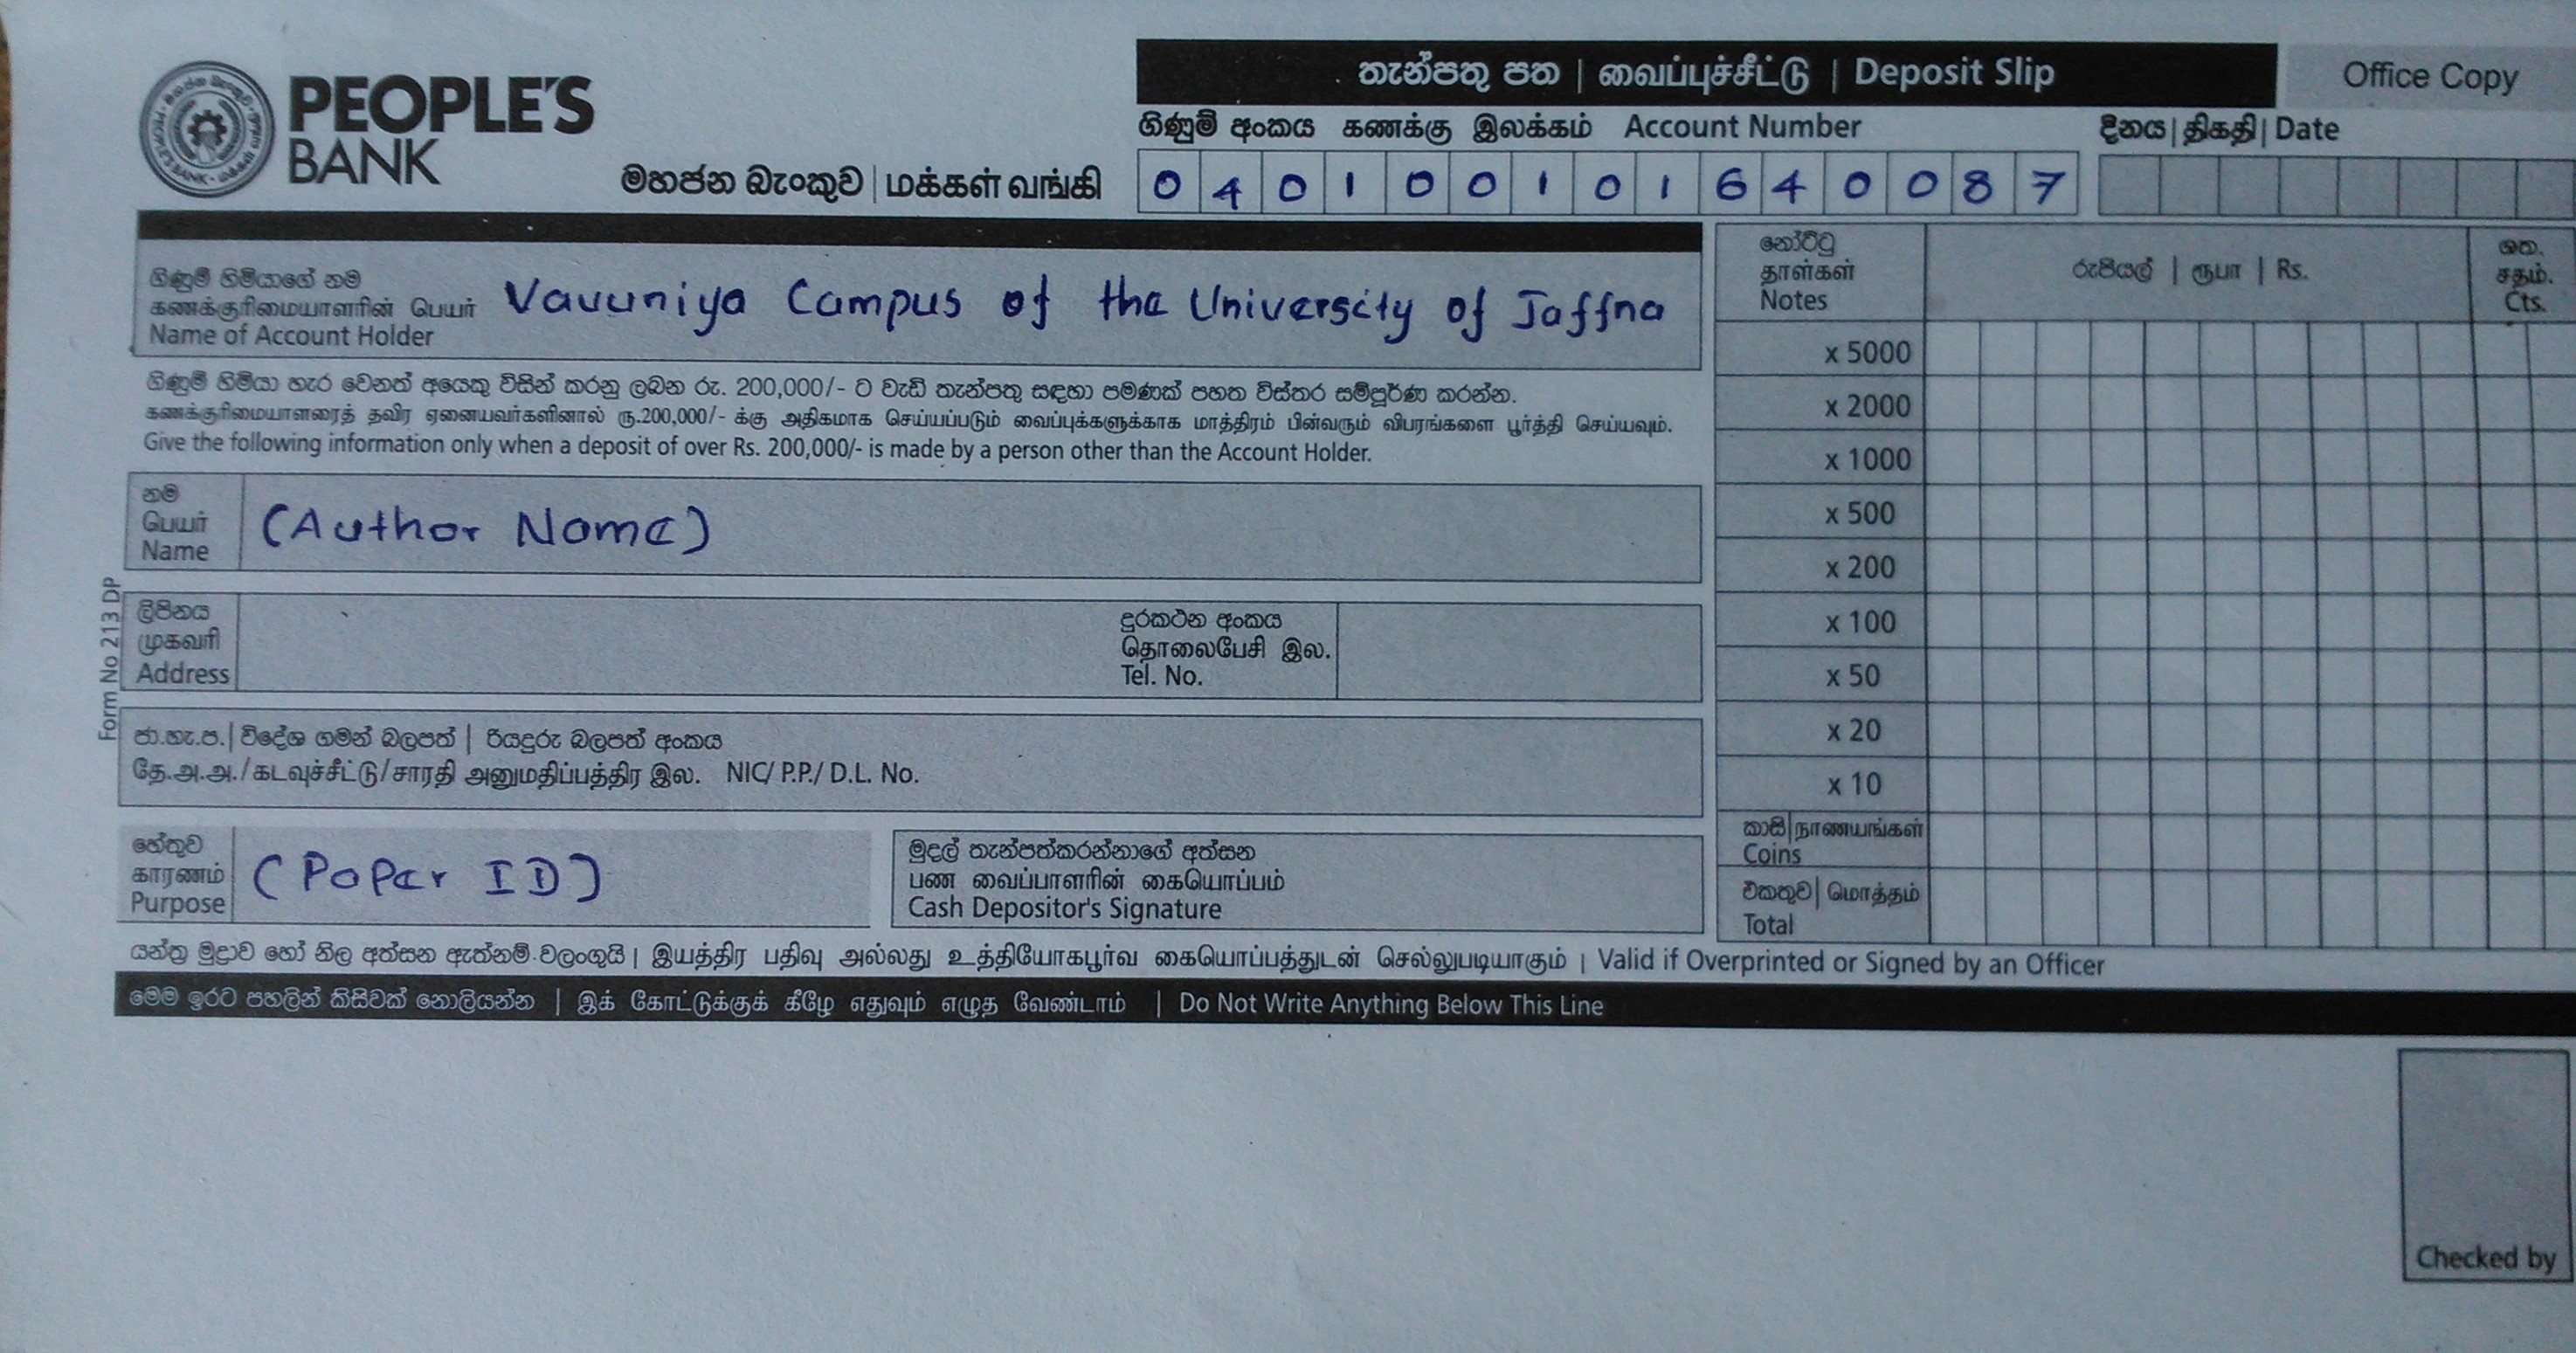 PEOPLE'S
BANK
මහජන බැංකුව | மக்கள் வங்கி
තැන්පතු පත | வைப்புச்சீட்டு | Deposit Slip
Office Copy
ගිණුම් අංකය கணக்கு இலக்கம் Account Number
දිනය | திகதி | Date
0 4 0 1 0 0 1 0 1 6 4 0 0 8 7
ගිණුම් හිමියාගේ නම
கணக்குரிமையாளரின் பெயர்
Name of Account Holder
Vavuniya Campus of the University of Jaffna
ගිණුම් හිමියා හැර වෙනත් අයෙකු විසින් කරනු ලබන රු. 200,000/- ට වැඩි තැන්පතු සඳහා පමණක් පහත විස්තර සම්පූර්ණ කරන්න.
கணக்குரிமையாளரைத் தவிர ஏனையவர்களினால் ரூ.200,000/- க்கு அதிகமாக செய்யப்படும் வைப்புக்களுக்காக மாத்திரம் பின்வரும் விபரங்களை பூர்த்தி செய்யவும்.
Give the following information only when a deposit of over Rs. 200,000/- is made by a person other than the Account Holder.
නම
பெயர்
Name
(Author Name)
ලිපිනය
முகவரி
Address
දුරකථන අංකය
தொலைபேசி இல.
Tel. No.
ජා.හැ.ප. | විදේශ ගමන් බලපත් | රියදුරු බලපත් අංකය
தே.அ.அ./கடவுச்சீட்டு/சாரதி அனுமதிப்பத்திர இல. NIC/ P.P./ D.L. No.
හේතුව
காரணம்
Purpose
(Paper ID)
මුදල් තැන්පත්කරන්නාගේ අත්සන
பண வைப்பாளரின் கையொப்பம்
Cash Depositor's Signature
Form No 213 DP
නෝට්ටු
தாள்கள்
Notes
රුපියල් | ரூபா | Rs.
ශත.
சதம்.
Cts.
x 5000
x 2000
x 1000
x 500
x 200
x 100
x 50
x 20
x 10
කාසි | நாணயங்கள்
Coins
එකතුව | மொத்தம்
Total
යන්ත්‍ර මුද්‍රාව හෝ නිල අත්සන ඇත්නම් වලංගුයි | இயந்திர பதிவு அல்லது உத்தியோகபூர்வ கையொப்பத்துடன் செல்லுபடியாகும் | Valid if Overprinted or Signed by an Officer
මෙම ඉරට පහලින් කිසිවක් නොලියන්න | இக் கோட்டுக்குக் கீழே எதுவும் எழுத வேண்டாம் | Do Not Write Anything Below This Line
Checked by